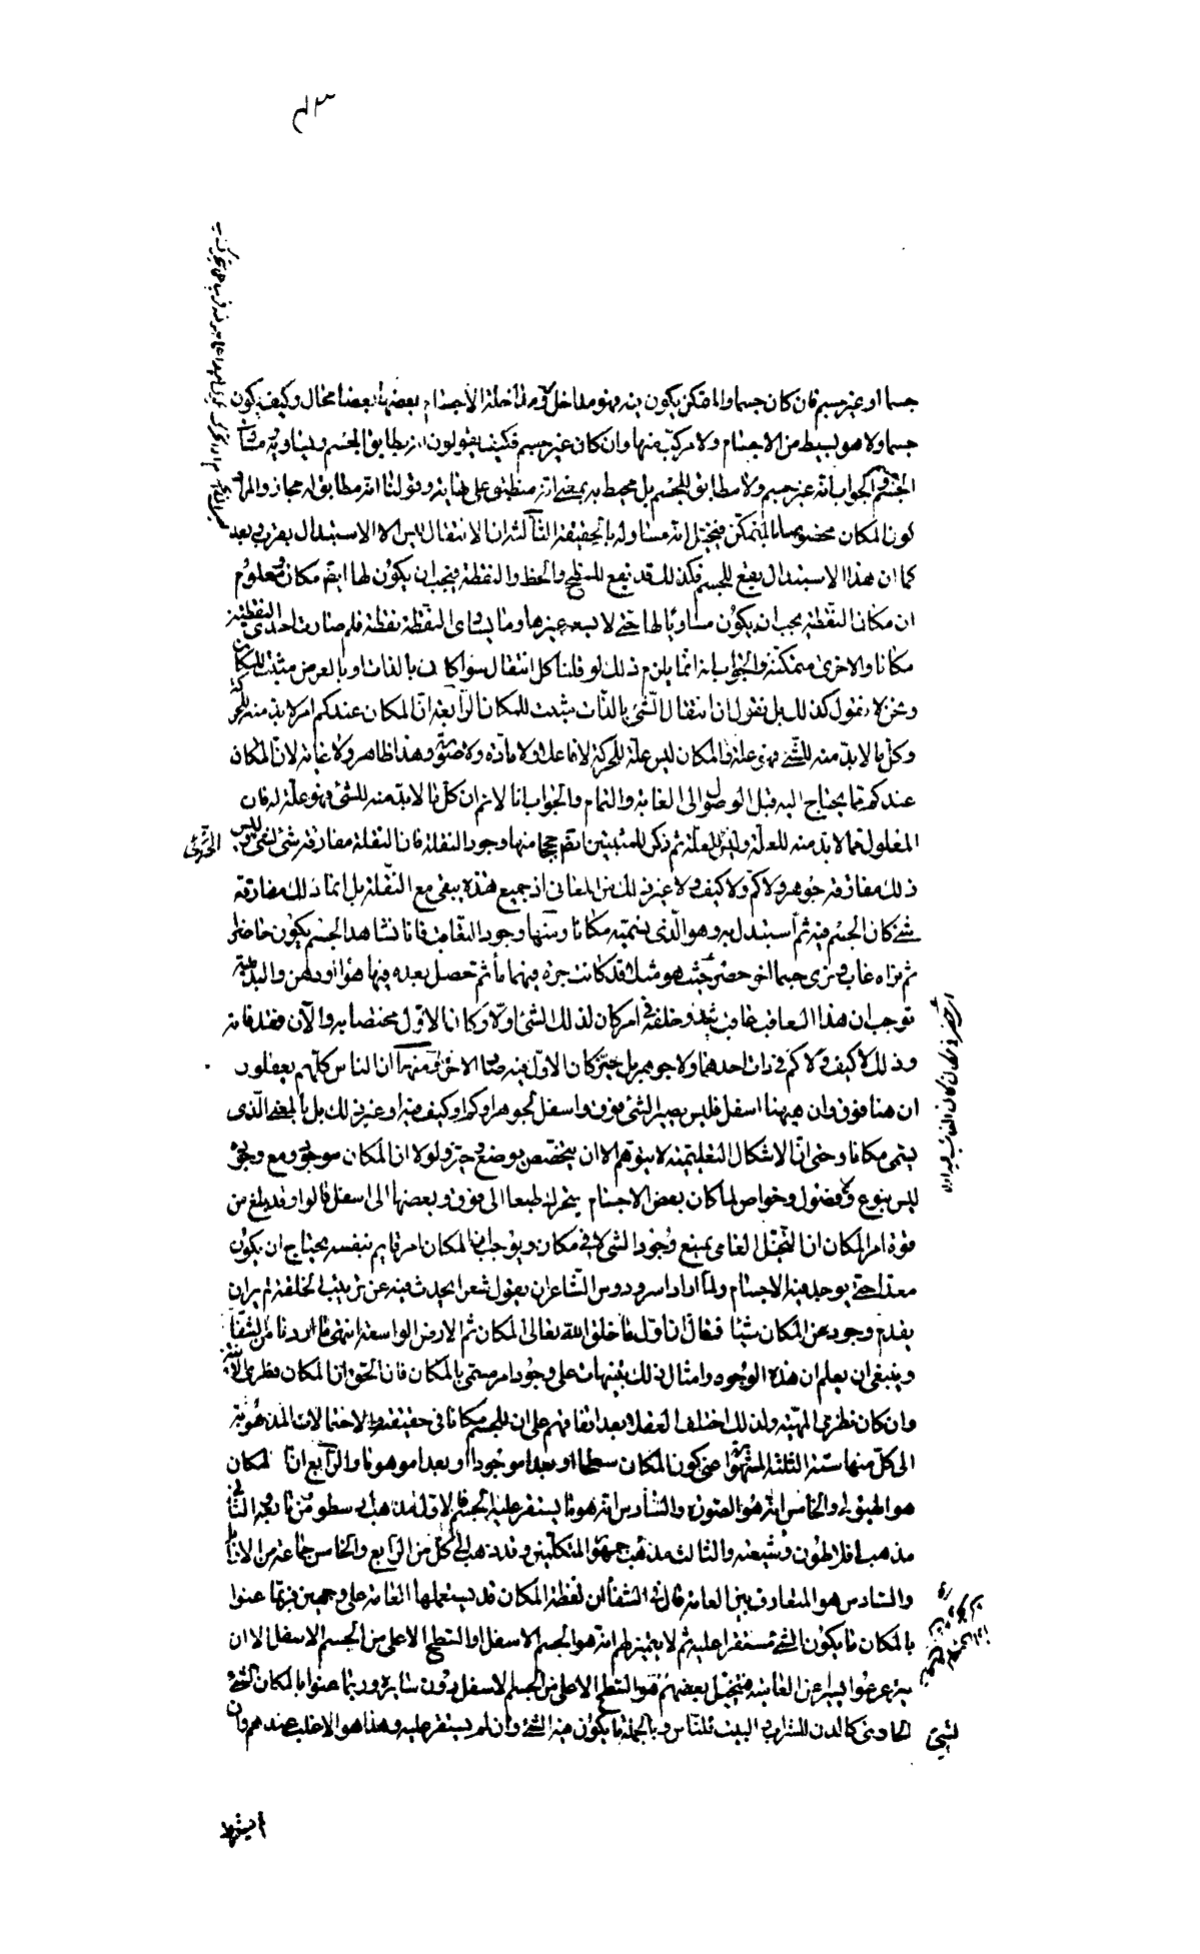 جسما او غير جسم فان كان جسما والمتمكن يكون فيه فهو مداخل له ومداخلة الاجسام بعضها بعضا محال وكيف يكون
جسما ولا هو بسيط من الاجسام ولا مركب منها وان كان غير جسم فكيف يقولون انه يطابق الجسم ويساويه
الجسم والجواب انه غير جسم ولا مطابق للجسم بل محيط به بمعنى انه منطبق على نهايته وقولنا انه مطابق له مجاز والمراد
كون المكان مخصوصا بالمتمكن فيتخيل انه مساو له بالحقيقة الثالث ان الانتقال ليس الا الاستبدال بقرب وبعد
كما ان هذا الاستبدال يقع للجسم فكذلك قد يقع للسطح والخط والنقطة فيجب ان يكون لها ايضا مكان ومعلوم
ان مكان النقطة يجب ان يكون مساويا لها حتى لا يسعه غيرها وما يساوى النقطة نقطة فلم صارت احدى النقطتين
مكانا والاخرى متمكنة والجواب انه انما يلزم ذلك لو قلنا كل انتقال سواء كان بالذات او بالعرض مثبت للمكان
ونحن لا نقول كذلك بل نقول ان انتقال الشئ بالذات مثبت للمكان الرابع ان المكان عندكم امر لا بد منه للحركة
وكل ما لا بد منه للشئ فهى علة والمكان ليس علة للحركة لا فاعلة ولا مادة ولا صورة وهذا ظاهر ولا غاية لان المكان
عندكم مما يحتاج اليه قبل الوصول الى الغاية والتمام والجواب انا لا نم ان كل ما لا بد منه للشئ فهو علة له فان
المعلول مما لا بد منه للعلة وليس للعلة ثم ذكر للمثبتين حججا منها وجود النقلة فان النقلة مفارقة شئ لشئ وليس
ذلك مفارقة جوهر ولا كم ولا كيف ولا غير ذلك من المعانى اذ جميع هذه يبقى مع النقلة بل انما ذلك مفارقة
شئ كان الجسم فيه ثم استبدل به وهو الذى نسميه مكانا ومنها وجود التعاقب فانا نشاهد الجسم يكون حاضرا
ثم نراه غاب ونرى جسما اخر حضر حيث هو مثلا قد كانت جرة فيها ماء ثم تحصل بعده فيها هواء او دهن والبديهة
توجب ان هذا المعاقب عاقب شيئا وخلفه فى امر كان لذلك الشئ اولا وكان الاول مختصا به والآن فقد فاته
وذلك لا كيف ولا كم فى ذات احدهما ولا جوهر بل حيز كان الاول فيه صار الاخر فيه ومنها ان الناس كلهم يعقلون
ان هنا فوق وان هيهنا اسفل فليس يصير الشئ فوق واسفل لجوهر او كم او كيف فيه او غير ذلك بل بالمعنى الذى
يسمى مكانا وحتى ان الاشكال التعليمية لا يتوهم الا ان يتخصص بوضع وحيز ولولا ان المكان موجود ومع وجوده
ليس بنوع وفصول وخواص لما كان بعض الاجسام يتحرك طبعا الى فوق وبعضها الى اسفل قالوا وقد بلغ من
قوة امر المكان ان التخيل العامى يمنع وجود الشئ لا فى مكان ويوجب ان المكان امر قائم بنفسه يحتاج ان يكون
معدا حتى يوجد فيه الاجسام ولما اراد اسرودوس الشاعر ان يقول شعرا يحدث فيه عن ترتيب الخلقة لم ير ان
يقدم وجود عن المكان شيئا فقال ان اول ما خلق الله تعالى المكان ثم الارض الواسعة انتهى ما اردنا من الشفا
وينبغى ان يعلم ان هذه الوجوه وامثال ذلك تنبيهات على وجود امر مسمى بالمكان فان الحق ان المكان فطرى الانية
وان كان نظرى المهية ولذلك اختلف العقلاء بعد اتفاقهم على ان للجسم مكانا فى حقيقته والاحتمالات المذهوبة
الى كل منها ستة الثلثة المشهورة اعنى كون المكان سطحا او بعدا موجودا او بعدا موهوما والرابع ان المكان
هو الهيولى والخامس انه هو الصورة والسادس انه هو ما يستقر عليه الجسم فالاول مذهب ارسطو ومن تابعه الثانى
مذهب افلاطون وشيعته والثالث مذهب جمهور المتكلمين وقد ذهب الى كل من الرابع والخامس جماعة من الاوائل
والسادس هو المتعارف بين العامة قال فى الشفاء ان لفظة المكان قد يستعملها العامة على وجهين فربما عنوا
بالمكان ما يكون الشئ مستقرا عليه ثم لا يتميز لهم انه هو الجسم الاسفل او السطح الاعلى من الجسم الاسفل الا ان
يتزعزعوا يسيرا عن العامية فيتخيل بعضهم انه هو السطح الاعلى من الجسم الاسفل دون سائره وربما عنوا بالمكان الشئ
الحاوى كالدن للشراب والبيت للناس وبالجملة ما يكون فيه الشئ وان لم يستقر عليه وهذا هو الاغلب عندهم وان